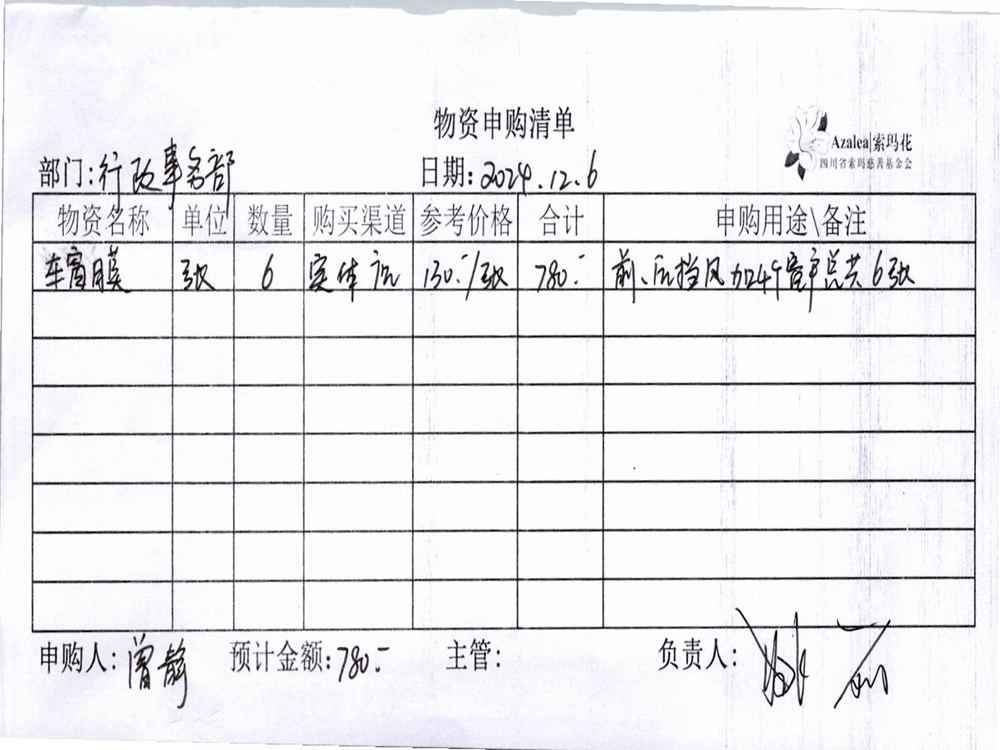 物资申购清单
Azalea|索玛花
四川省索玛慈善基金会
部门:行政事务部 日期:2024.12.6
物资名称 单位 数量 购买渠道 参考价格 合计 申购用途\备注
车窗膜 张 6 实体店 130.-/张 780.- 前、后挡风加4个窗户总共6张
申购人:曾静 预计金额:780.- 主管: 负责人: